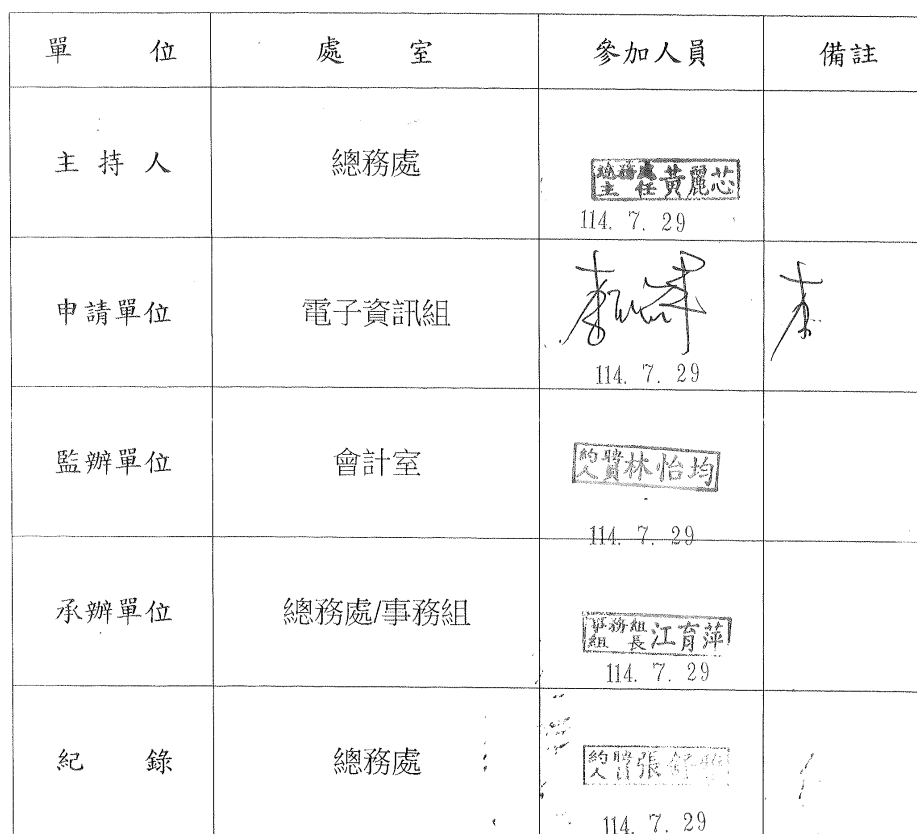 單 位 處 室 參加人員 備註
主 持 人 總務處 總務處主任 黃麗芯
114. 7. 29
申請單位 電子資訊組
114. 7. 29
監辦單位 會計室 約聘人員 林怡均
114. 7. 29
承辦單位 總務處/事務組 事務組組長 江育萍
114. 7. 29
紀 錄 總務處 約聘人員 張舒
114. 7. 29